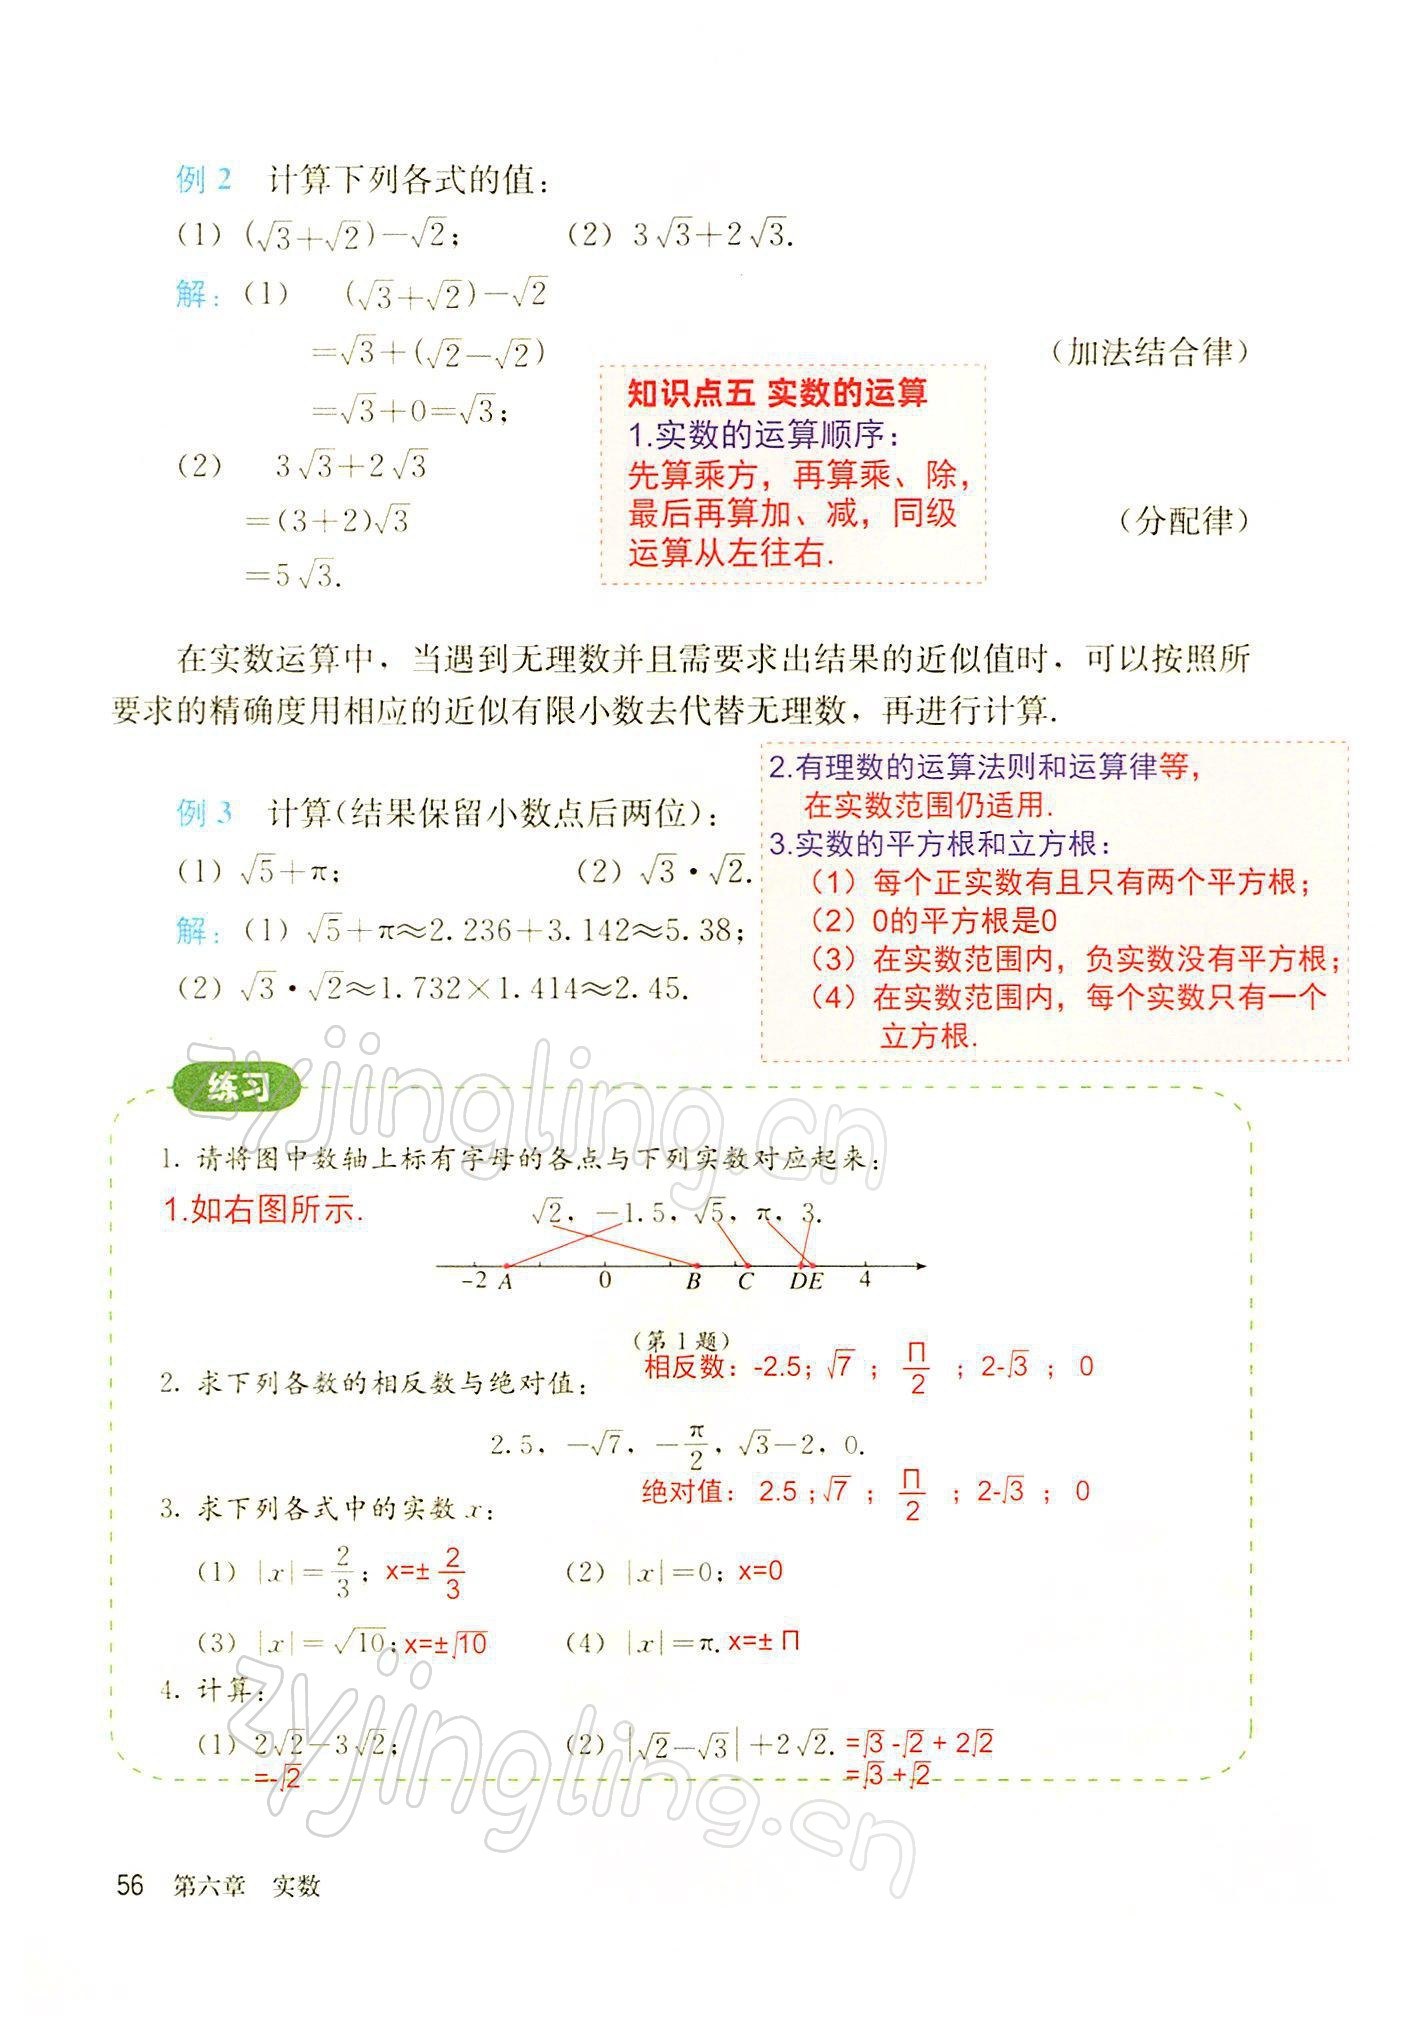 例 2 计算下列各式的值:
(1) (√3+√2)-√2; (2) 3√3+2√3.
解: (1) (√3+√2)-√2
=√3+(√2-√2) (加法结合律)
=√3+0=√3;
知识点五 实数的运算
1.实数的运算顺序:
先算乘方，再算乘、除，
最后再算加、减，同级
运算从左往右.
(2) 3√3+2√3
=(3+2)√3 (分配律)
=5√3.
在实数运算中，当遇到无理数并且需要求出结果的近似值时，可以按照所
要求的精确度用相应的近似有限小数去代替无理数，再进行计算.
2.有理数的运算法则和运算律等，
在实数范围仍适用.
3.实数的平方根和立方根:
(1) 每个正实数有且只有两个平方根;
(2) 0的平方根是0
(3) 在实数范围内，负实数没有平方根;
(4) 在实数范围内，每个实数只有一个
立方根.
例 3 计算(结果保留小数点后两位):
(1) √5+π; (2) √3·√2.
解: (1) √5+π≈2.236+3.142≈5.38;
(2) √3·√2≈1.732×1.414≈2.45.
练习
1. 请将图中数轴上标有字母的各点与下列实数对应起来:
1.如右图所示.
√2, -1.5, √5, π, 3.
-2 A 0 B C DE 4
(第 1 题)
相反数: -2.5; √7 ; Π/2 ; 2-√3 ; 0
2. 求下列各数的相反数与绝对值:
2.5, -√7, -π/2, √3-2, 0.
绝对值: 2.5 ; √7 ; Π/2 ; 2-√3 ; 0
3. 求下列各式中的实数 x:
(1) |x|=2/3; x=± 2/3 (2) |x|=0; x=0
(3) |x|=√10; x=±√10 (4) |x|=π. x=± Π
4. 计算:
(1) 2√2-3√2; (2) |√2-√3|+2√2. =√3-√2+2√2
=-√2 =√3+√2
56 第六章 实数
zyjingling.cn
zyjingling.cn